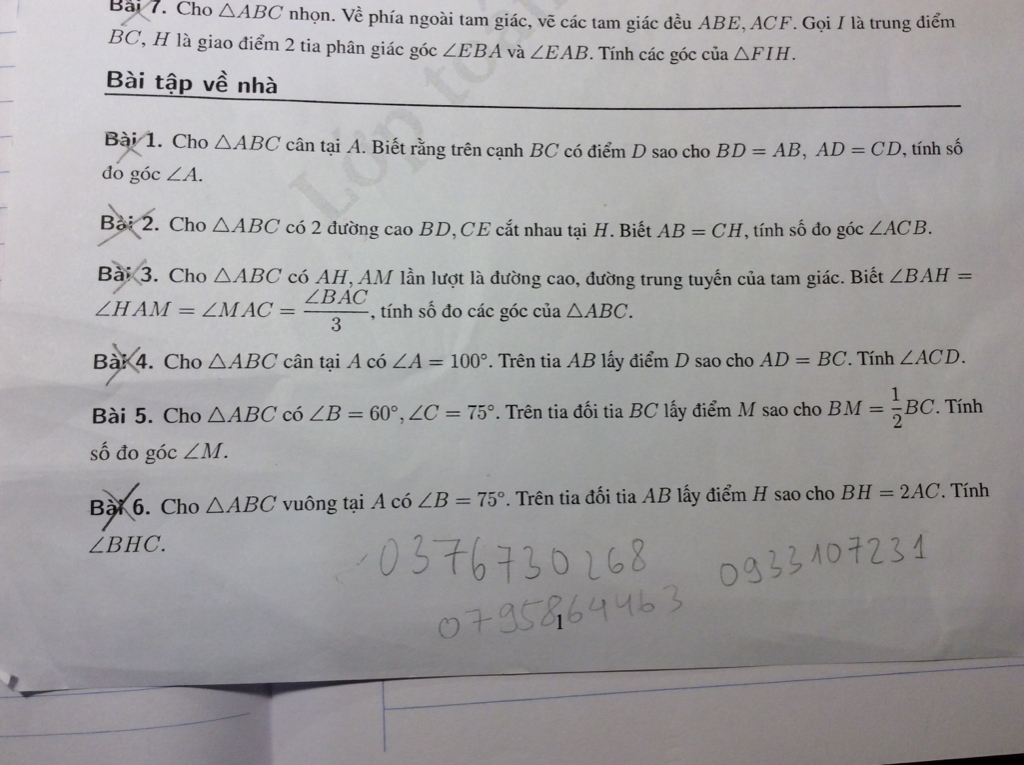 Bài 7. Cho △ABC nhọn. Về phía ngoài tam giác, vẽ các tam giác đều ABE, ACF. Gọi I là trung điểm
BC, H là giao điểm 2 tia phân giác góc ∠EBA và ∠EAB. Tính các góc của △FIH.
Bài tập về nhà
Bài 1. Cho △ABC cân tại A. Biết rằng trên cạnh BC có điểm D sao cho BD = AB, AD = CD, tính số
đo góc ∠A.
Bài 2. Cho △ABC có 2 đường cao BD, CE cắt nhau tại H. Biết AB = CH, tính số đo góc ∠ACB.
Bài 3. Cho △ABC có AH, AM lần lượt là đường cao, đường trung tuyến của tam giác. Biết ∠BAH =
∠HAM = ∠MAC = ∠BAC/3, tính số đo các góc của △ABC.
Bài 4. Cho △ABC cân tại A có ∠A = 100°. Trên tia AB lấy điểm D sao cho AD = BC. Tính ∠ACD.
Bài 5. Cho △ABC có ∠B = 60°, ∠C = 75°. Trên tia đối tia BC lấy điểm M sao cho BM = 1/2 BC. Tính
số đo góc ∠M.
Bài 6. Cho △ABC vuông tại A có ∠B = 75°. Trên tia đối tia AB lấy điểm H sao cho BH = 2AC. Tính
∠BHC.
0376730268 0933107231
0795864463
1
Lớp toán